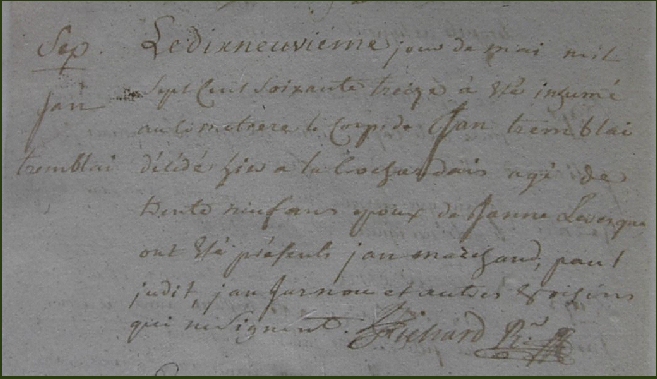 Sep.
jan
tremblai
Le dixneuvieme jour de mai mil
sept cent soixante treize à été inhumé
au cimetière le corps de jan tremblai
décédé hier a la age de
trente neuf ans epoux de janne Levesque
ont été présents jan marchand, paul
judit, jan furnon et autres voisins
qui ne signent. Richard Rr.